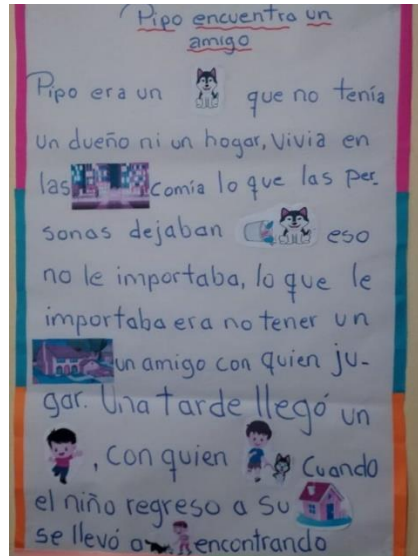 Pipo encuentra un
amigo
Pipo era un que no tenía
un dueño ni un hogar, vivia en
las comía lo que las per-
sonas dejaban eso
no le importaba, lo que le
importaba era no tener un
un amigo con quien ju-
gar. Una tarde llegó un
, con quien Cuando
el niño regreso a su
se llevó a encontrando